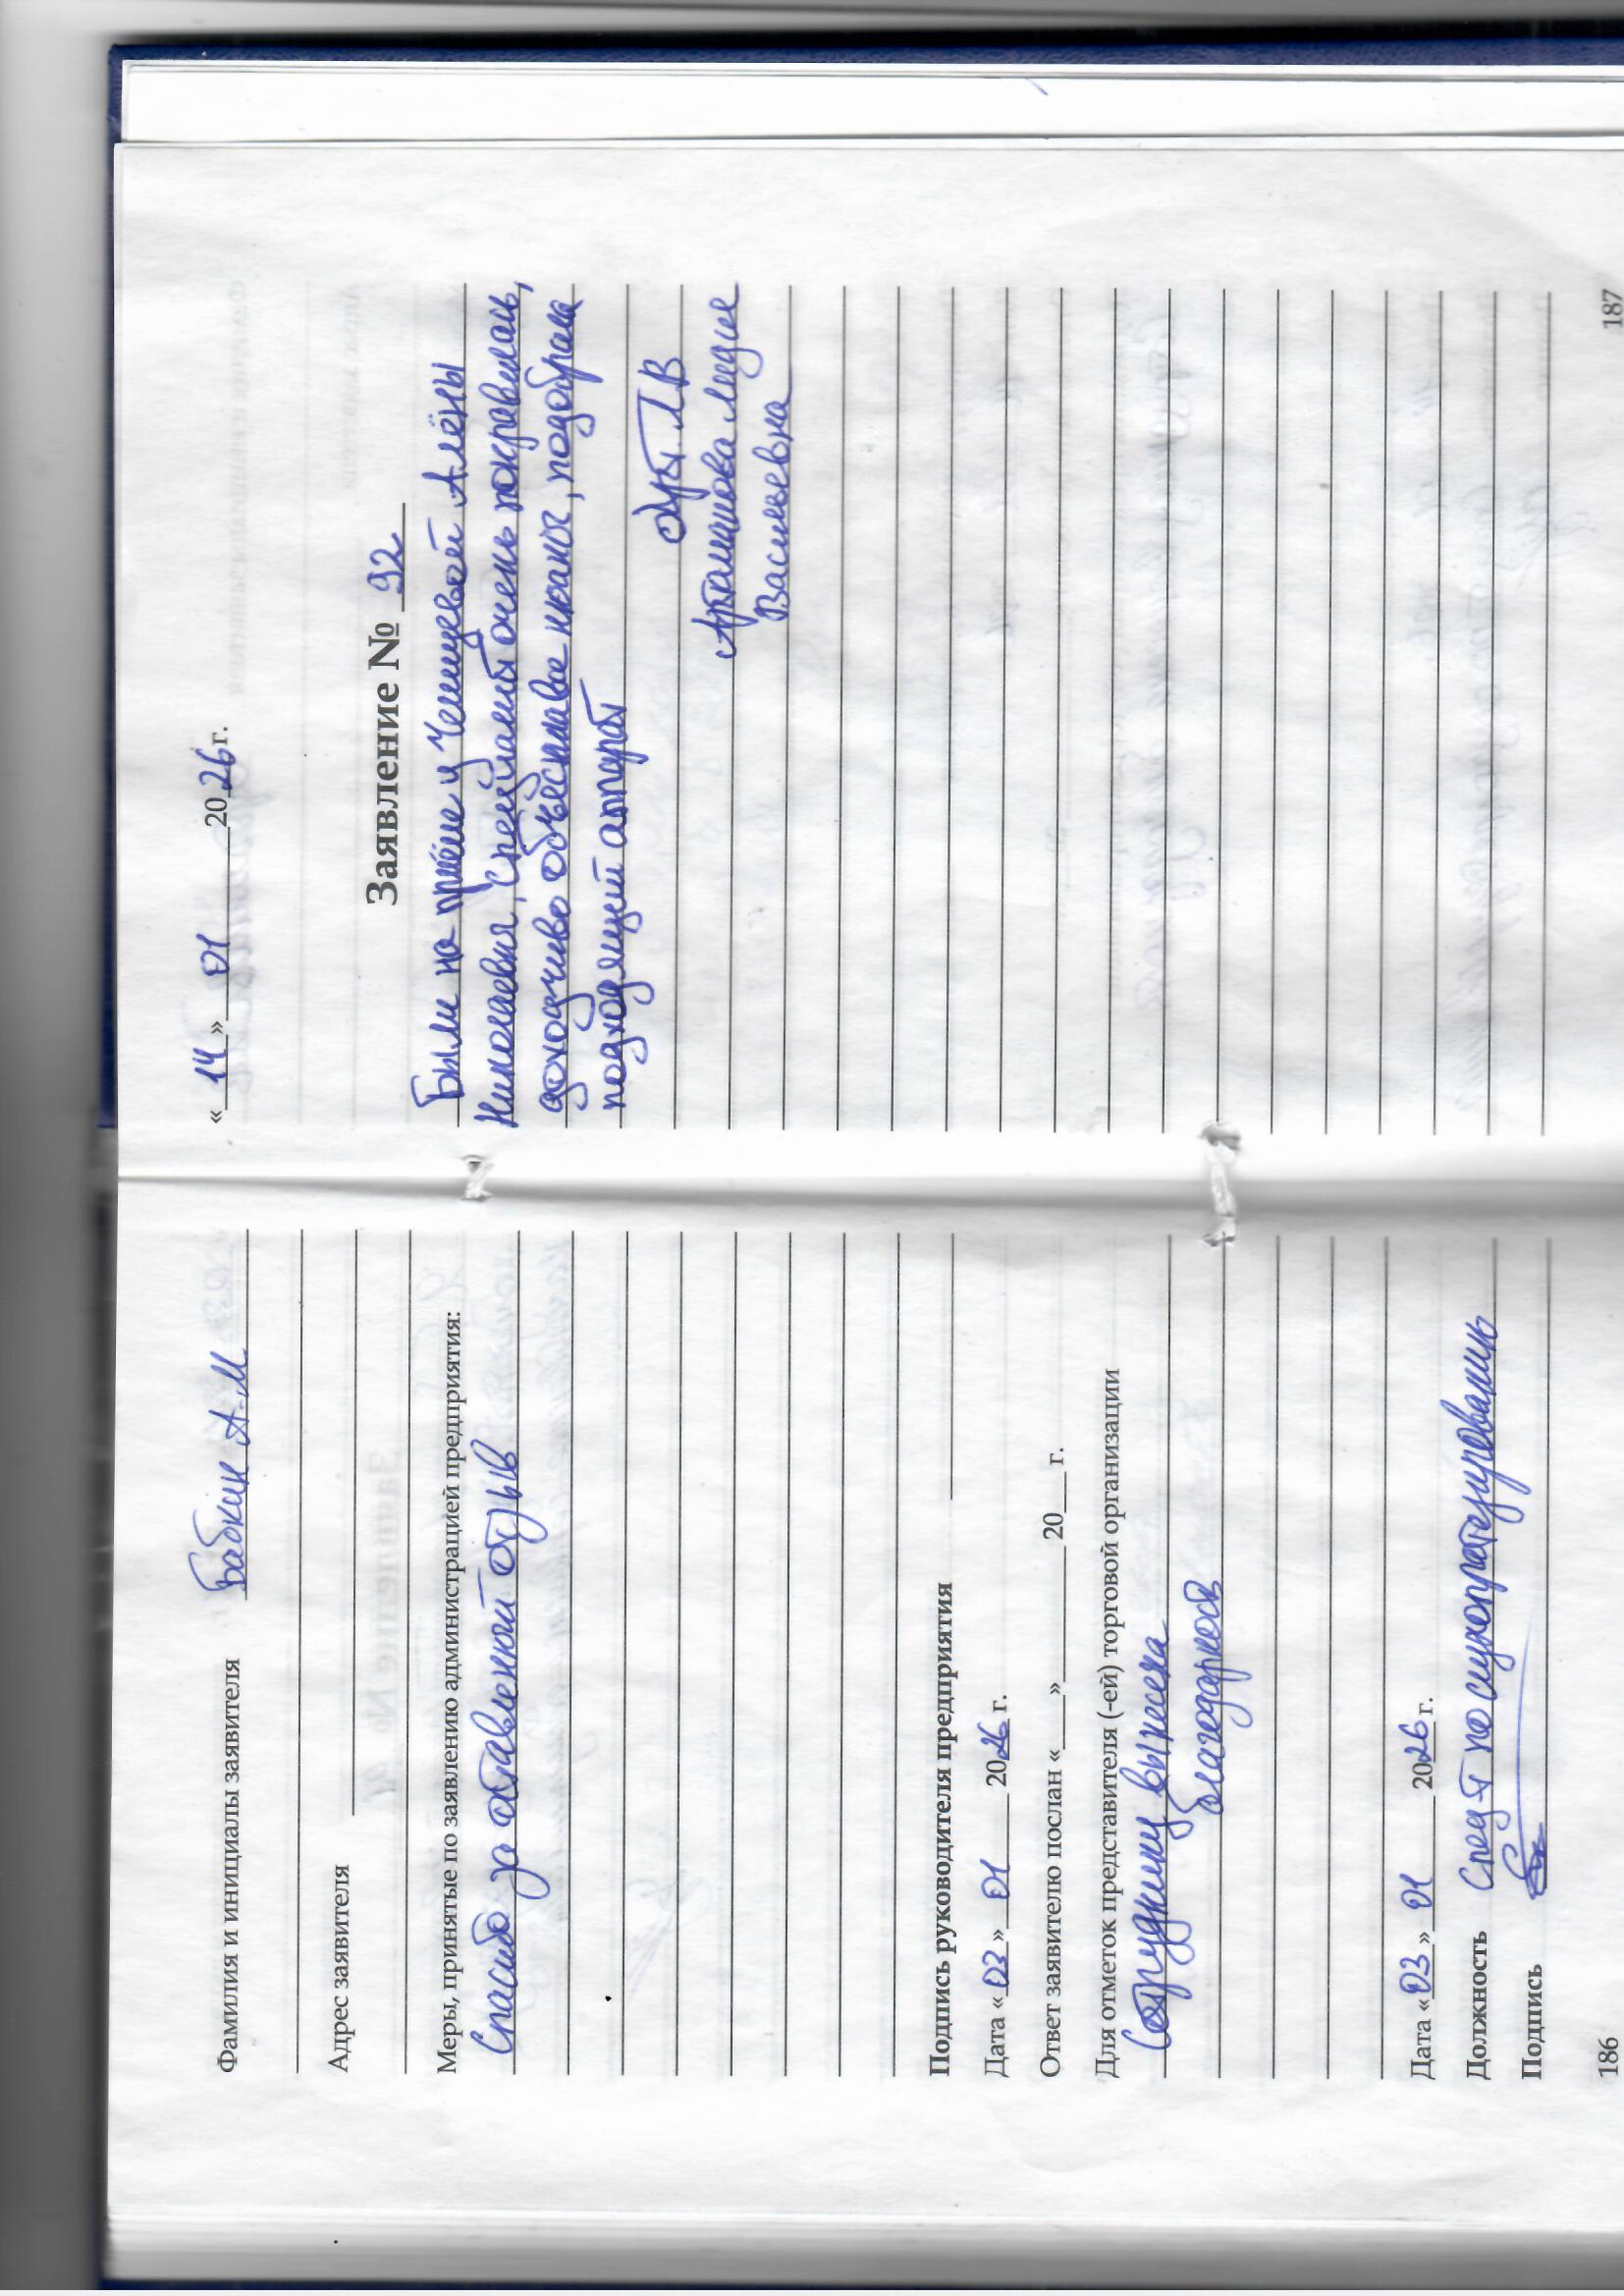 Фамилия и инициалы заявителя Бабкин А.М
Адрес заявителя
Меры, принятые по заявлению администрацией предприятия:
Спасибо за оставленный отзыв
Подпись руководителя предприятия
Дата «03» 01 2026 г.
Ответ заявителю послан «   » 20   г.
Для отметок представителя (-ей) торговой организации
Сотруднику вынесена
благодарность
Дата «03» 01 2026 г.
Должность Спец-т по слухопротезированию
Подпись
186
«14» 01 2026 г.
Заявление № 92
Были на приёме у Алёны
Николаевня, специалист очень понравилась,
доходчиво объяснила все нюанс, подобрала
подходящий аппарат
Л В
Лидия
Васильевна
187